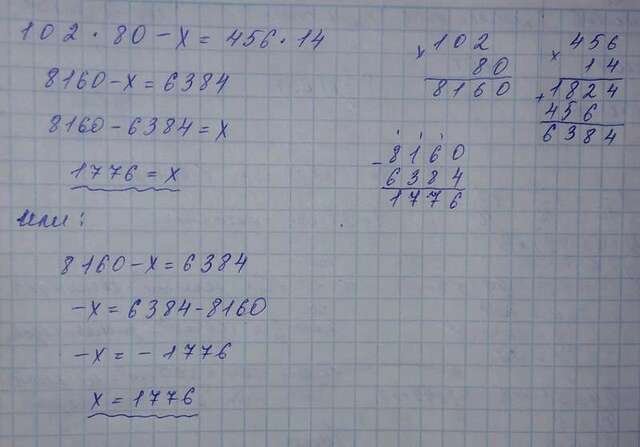 102 · 80 - x = 456 · 14
8160 - x = 6384
8160 - 6384 = x
1776 = x
или:
8160 - x = 6384
-x = 6384 - 8160
-x = - 1776
x = 1776
× 102
80
8160
- 8160
6384
1776
× 456
14
+ 1824
456
6384